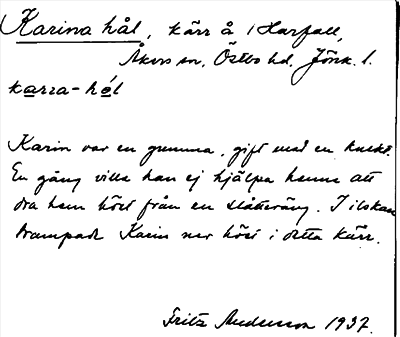 Karina hål, kärr å 1 Harfall,
Åkers sn, Östbo hd, Jönk. l.
karra-hól
Karin var en gumma, gift med en knekt.
En gång ville han ej hjälpa henne att
dra hem höet från en slåtteräng. I ilskan
trampade Karin ner höet i detta kärr.
Fritz Andersson 1937.